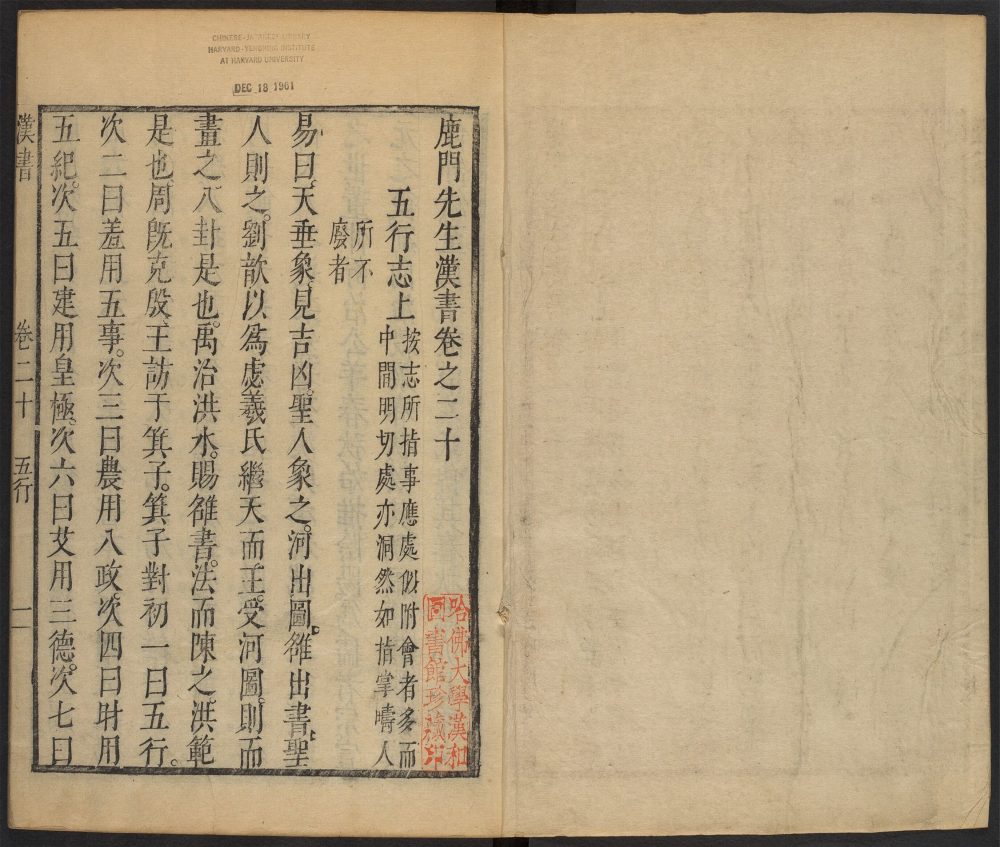 CHINESE-JAPANESE LIBRARY
HARVARD-YENCHING INSTITUTE
AT HARVARD UNIVERSITY
DEC 18 1961
鹿門先生漢書卷之二十
五行志上
按志所指事應處似附會者多而
中間明切處亦洞然如指掌疇人
所不
廢者
易曰、天垂象、見吉凶、聖人象之。河出圖。雒出書。聖
人則之。劉歆以爲虙羲氏繼天而王。受河圖。則而
畫之、八卦是也。禹治洪水。賜雒書。法而陳之、洪範
是也。周旣克殷、王訪于箕子。箕子對初一曰五行。
次二曰羞用五事。次三曰農用八政。次四曰旪用
五紀。次五曰建用皇極。次六曰艾用三德。次七曰
漢書
卷二十
五行
一
哈佛大學漢和
圖書館珍藏印